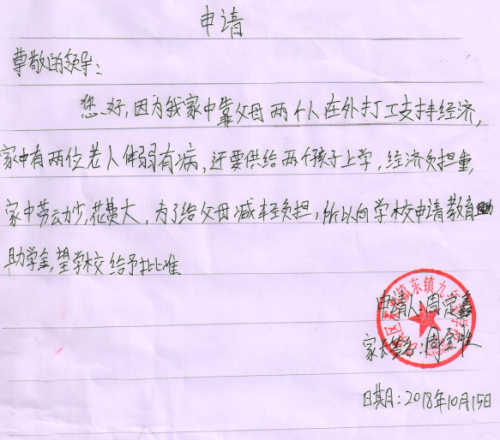 申请
尊敬的领导:
您好,因为我家中靠父母两个人在外打工支撑经济,
家中有两位老人体弱有病,还要供给两个孩子上学,经济负担重,
家中劳动力少,花费大,为了给父母减轻负担,所以向学校申请教育
助学金,望学校给予批准
申请人:周定鑫
家长签名:周
日期:2018年10月15日
东镇九